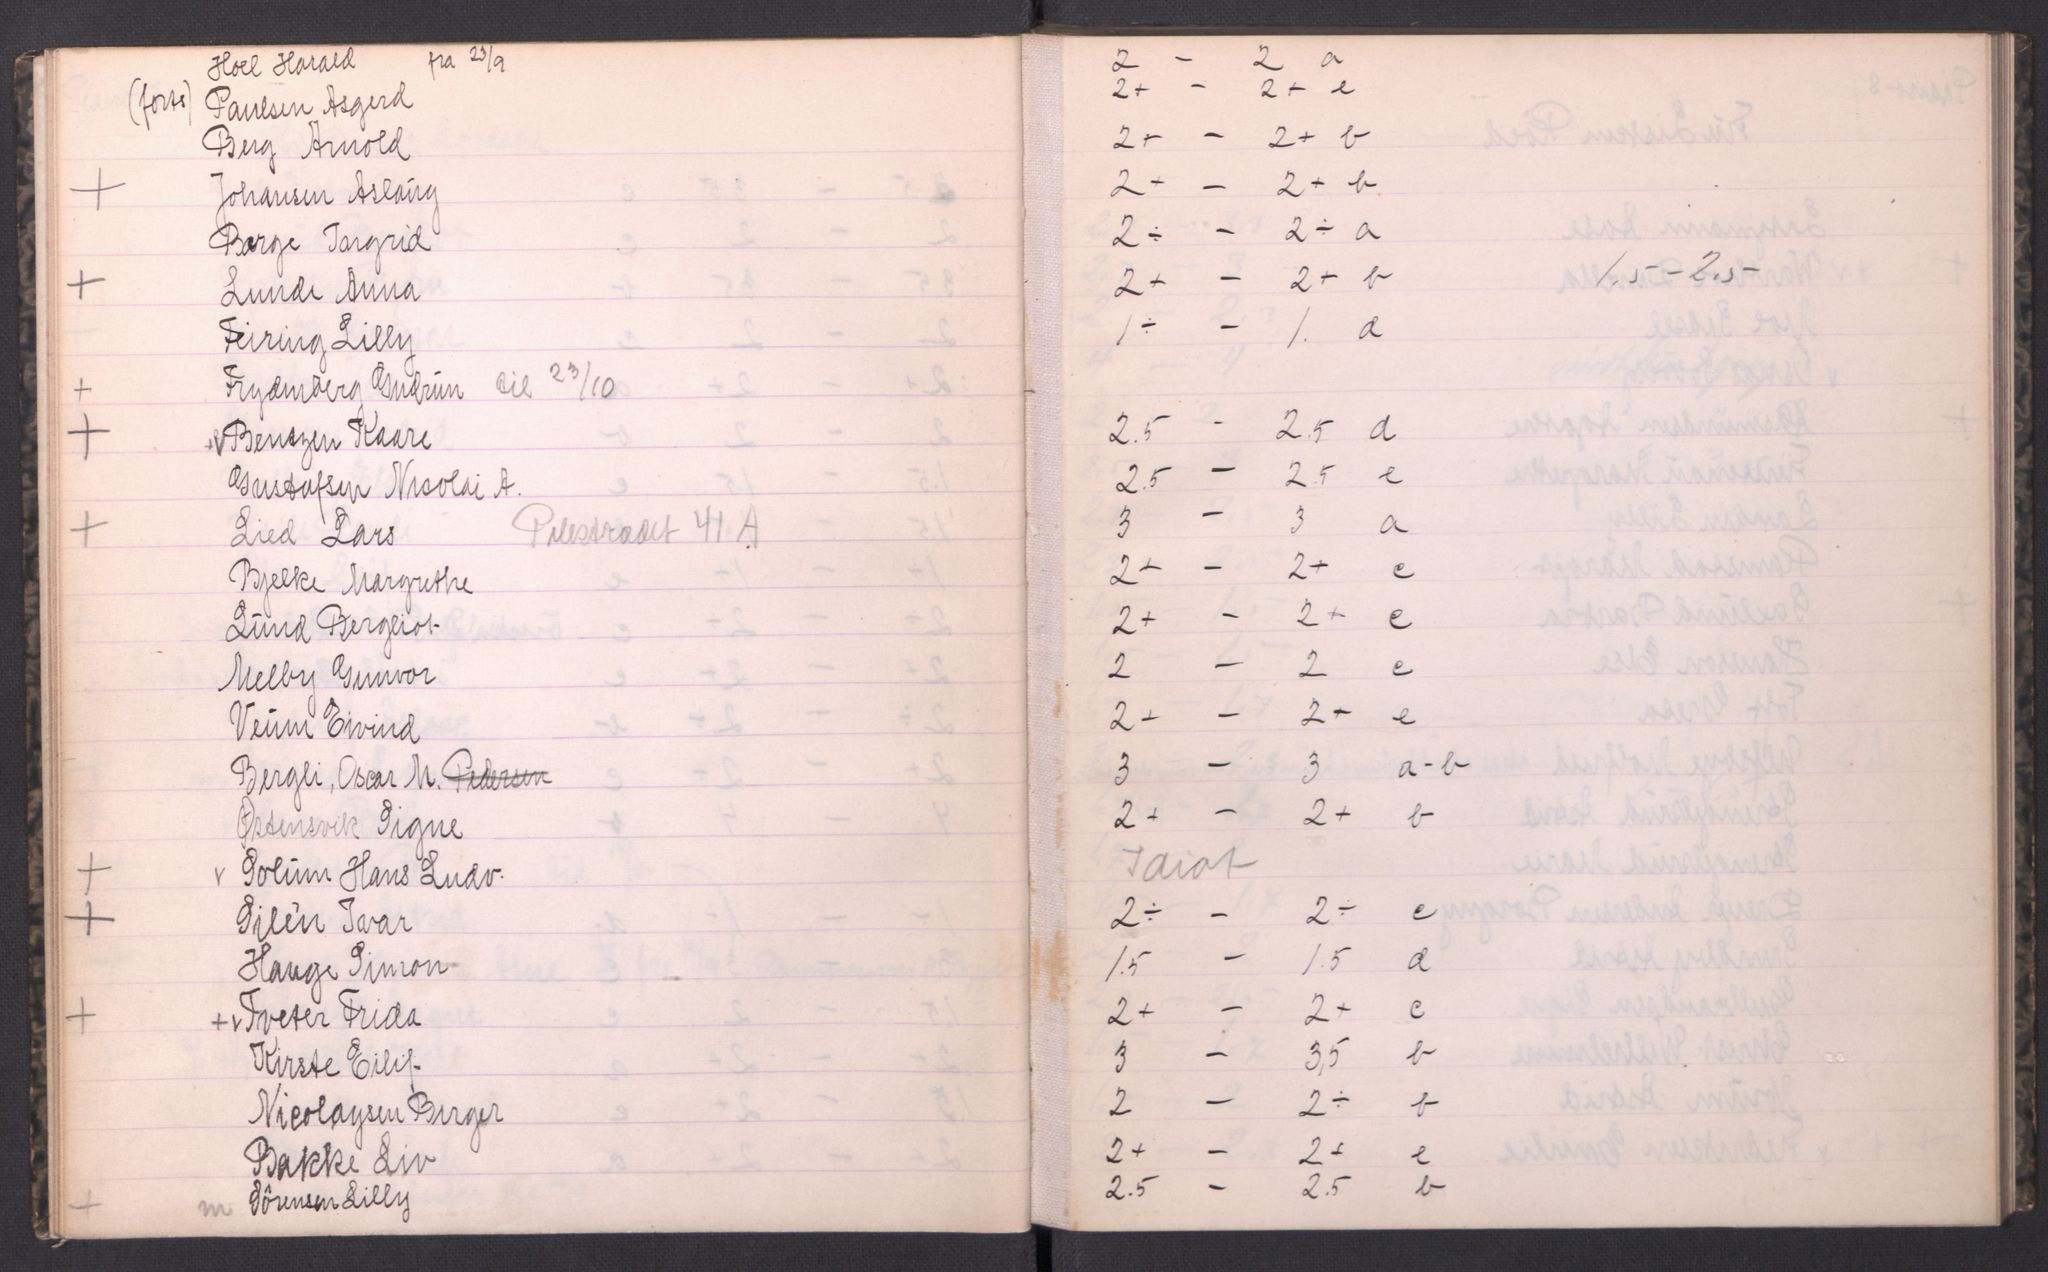 Hoel Harald fra 23/9 2 - 2 a
(forts) Paulsen Asgerd 2+ - 2+ e
Berg Arnold 2+ - 2+ b
+ Johansen Aslaug 2+ - 2+ b
Berge Ingrid 2÷ - 2÷ a
+ Lunde Anna 2+ - 2+ b 1.5-2.5-
Feiring Lilly 1÷ - 1. d
+ Frydenberg Gudrun til 23/10
+ +v Bentzen Kaare 2.5 - 2.5 d
Gustafsen Nicolai A. 2.5 - 2.5 e
+ Lied Lars Pilestrædet 41 A 3 - 3 a
Bjelke Margrethe 2+ - 2+ c
Lund Bergliot 2+ - 2+ c
Melby Gunvor 2 - 2 c
Veum Eivind 2+ - 2+ e
Bergli, Oscar M. Pedersen 3 - 3 a-b
Østensvik Signe 2+ - 2+ b
+ v Solum Hans Ludv. Idiot
+ Silén Ivar 2÷ - 2÷ c
Hauge Simon 1.5 - 1.5 d
+ +v Tveter Frida 2+ - 2+ c
Kirste Eilif 3 - 3,5 b
Nicolaysen Birger 2 - 2÷ b
Bakke Liv 2+ - 2+ e
+ m Sörensen Lilly 2.5 - 2.5 b